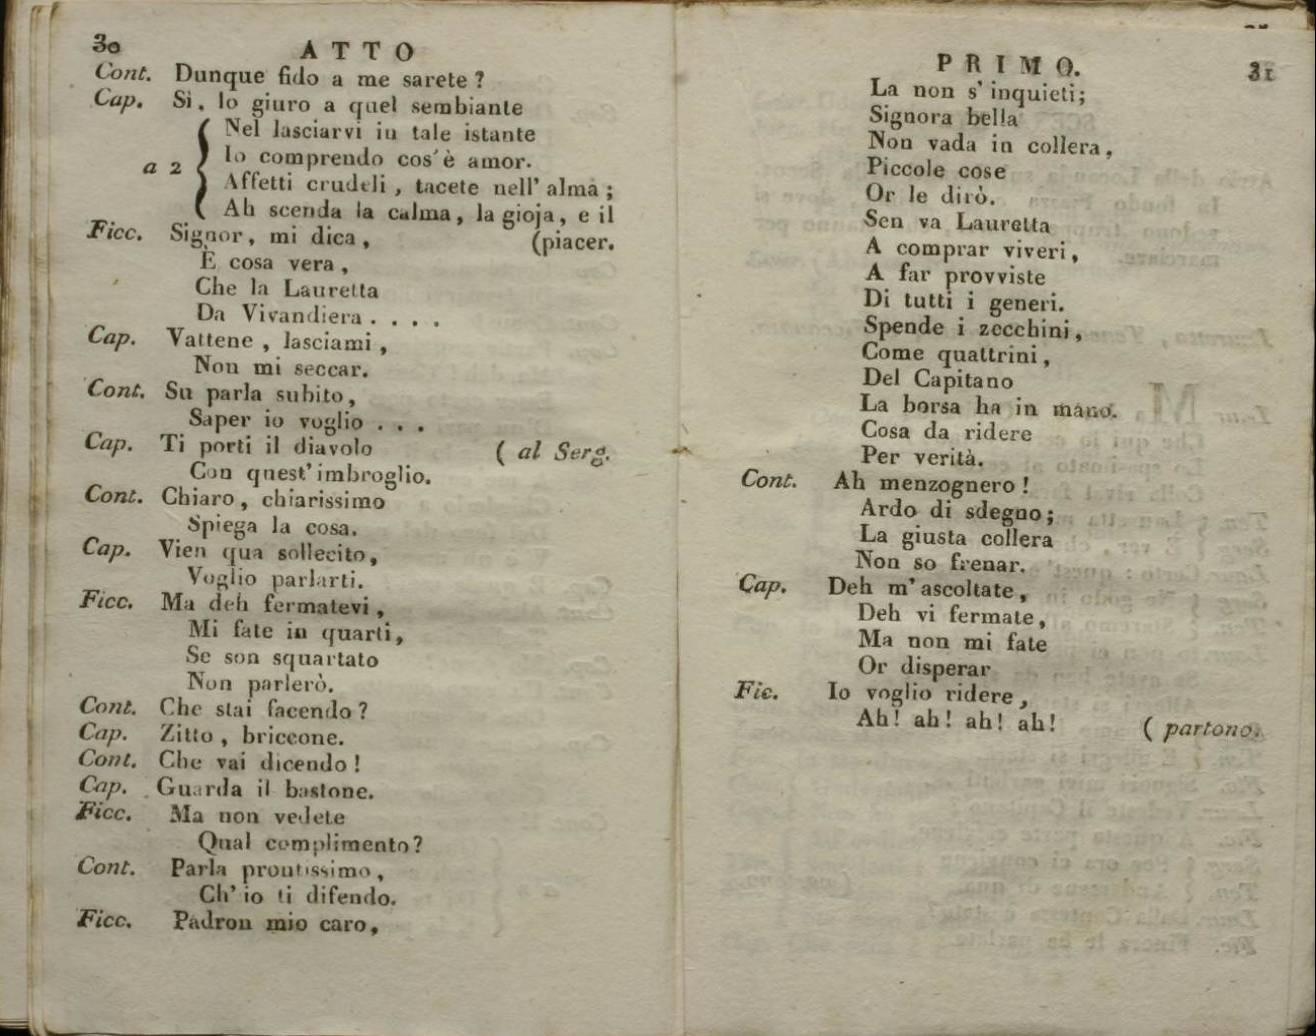 30
ATTO
Cont. Dunque fido a me sarete ?
Cap. Sì, lo giuro a quel sembiante
Nel lasciarvi in tale istante
Io comprendo cos'è amor.
a 2
Affetti crudeli, tacete nell' alma ;
Ah scenda la calma, la gioja, e il
(piacer.
Ficc. Signor, mi dica,
È cosa vera,
Che la Lauretta
Da Vivandiera . . . .
Cap. Vattene, lasciami,
Non mi seccar.
Cont. Su parla subito,
Saper io voglio . . .
Cap. Ti porti il diavolo ( al Serg.
Con quest' imbroglio.
Cont. Chiaro, chiarissimo
Spiega la cosa.
Cap. Vien qua sollecito,
Voglio parlarti.
Ficc. Ma deh fermatevi,
Mi fate in quarti,
Se son squartato
Non parlerò.
Cont. Che stai facendo ?
Cap. Zitto, briccone.
Cont. Che vai dicendo !
Cap. Guarda il bastone.
Ficc. Ma non vedete
Qual complimento ?
Cont. Parla prontissimo,
Ch' io ti difendo.
Ficc. Padron mio caro,
PRIMO.
31
La non s' inquieti;
Signora bella
Non vada in collera,
Piccole cose
Or le dirò.
Sen va Lauretta
A comprar viveri,
A far provviste
Di tutti i generi.
Spende i zecchini,
Come quattrini,
Del Capitano
La borsa ha in mano.
Cosa da ridere
Per verità.
Cont. Ah menzognero !
Ardo di sdegno ;
La giusta collera
Non so frenar.
Cap. Deh m' ascoltate,
Deh vi fermate,
Ma non mi fate
Or disperar
Fic. Io voglio ridere,
Ah! ah! ah! ah! ( partono.